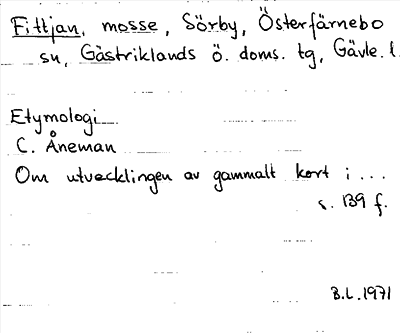 Fittjan, mosse, Sörby, Österfärnebo
sn, Gästriklands ö. doms. tg, Gävle. l
Etymologi
C. Åneman
Om utvecklingen av gammalt kort i ...
s. 139 f.
B.L. 1971